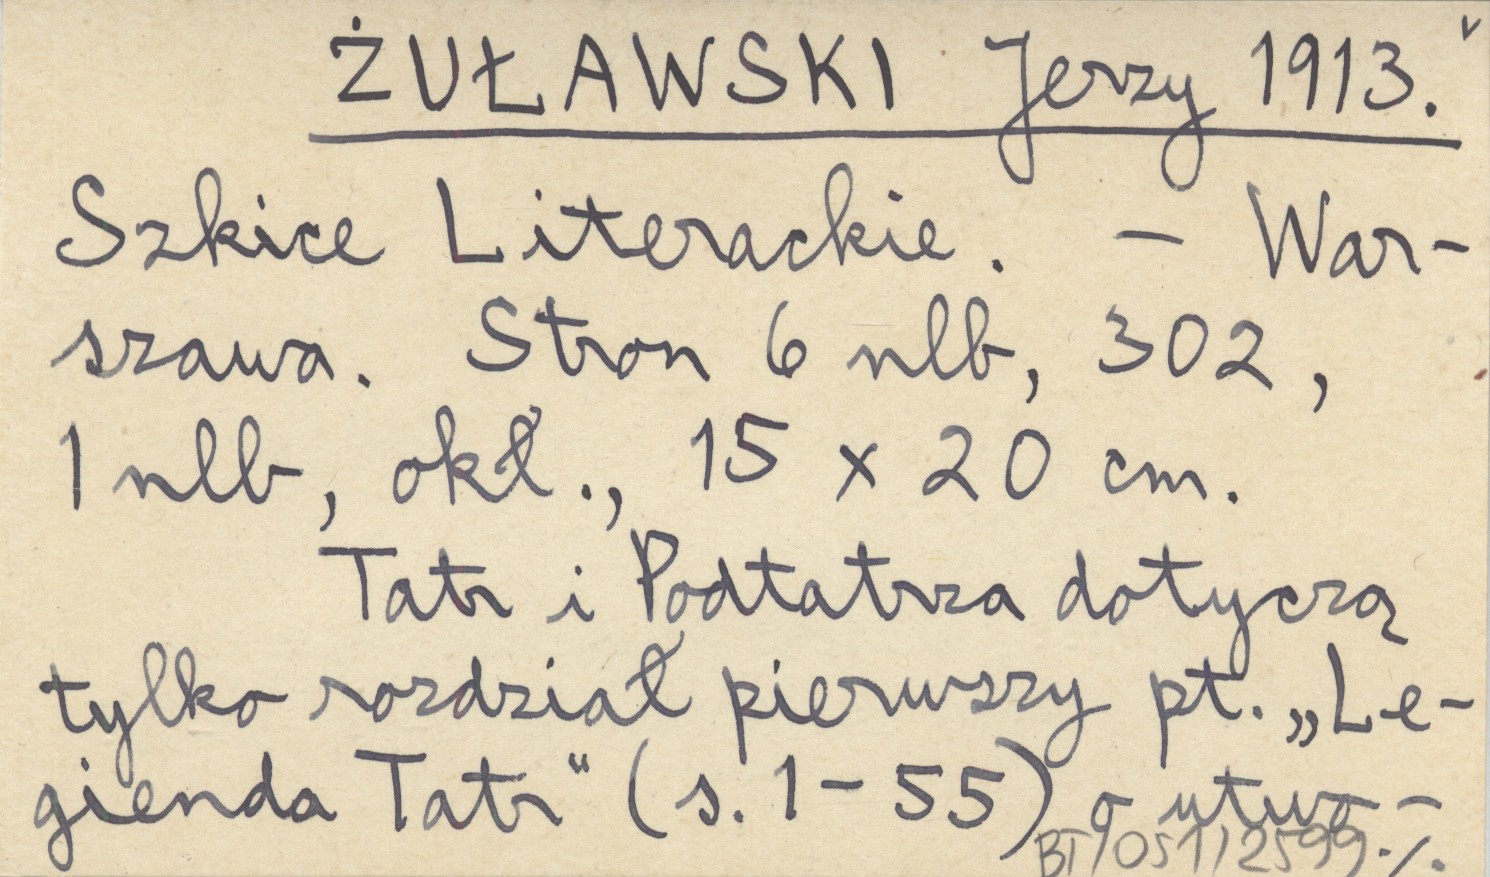 ŻUŁAWSKI Jerzy 1913.
Szkice Literackie. – War-
szawa. Stron 6 nlb, 302,
1 nlb, okł., 15 x 20 cm.
Tatr i Podtatrza dotyczą
tylko rozdział pierwszy pt. „Le-
gienda Tatr" (s. 1 – 55) o utwo-
BT/051/2599 ./.